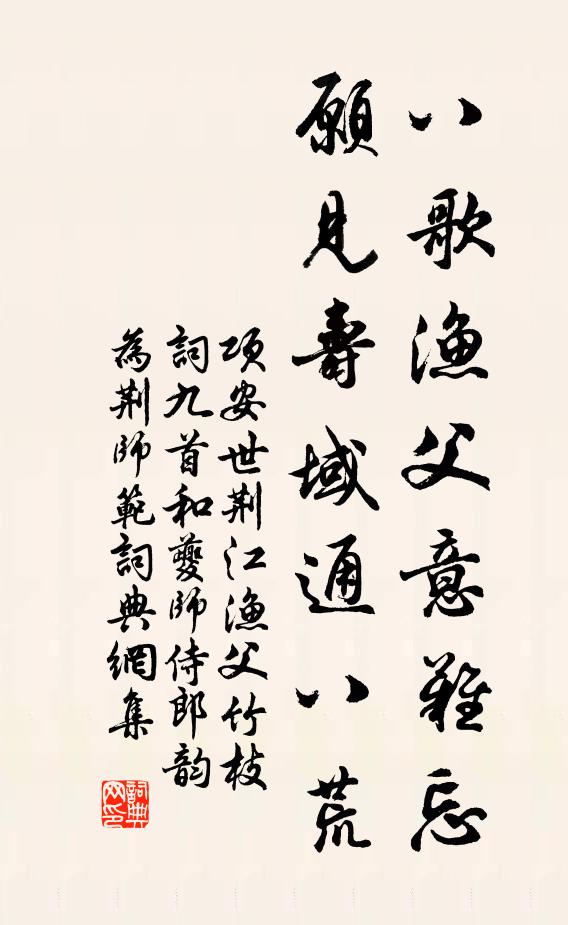 八歌漁父意難忘
願見壽域通八荒
項安世荆江漁父竹枝
詞九首和夔師侍郎韵
為荆師範詞典網集
詞典
网印